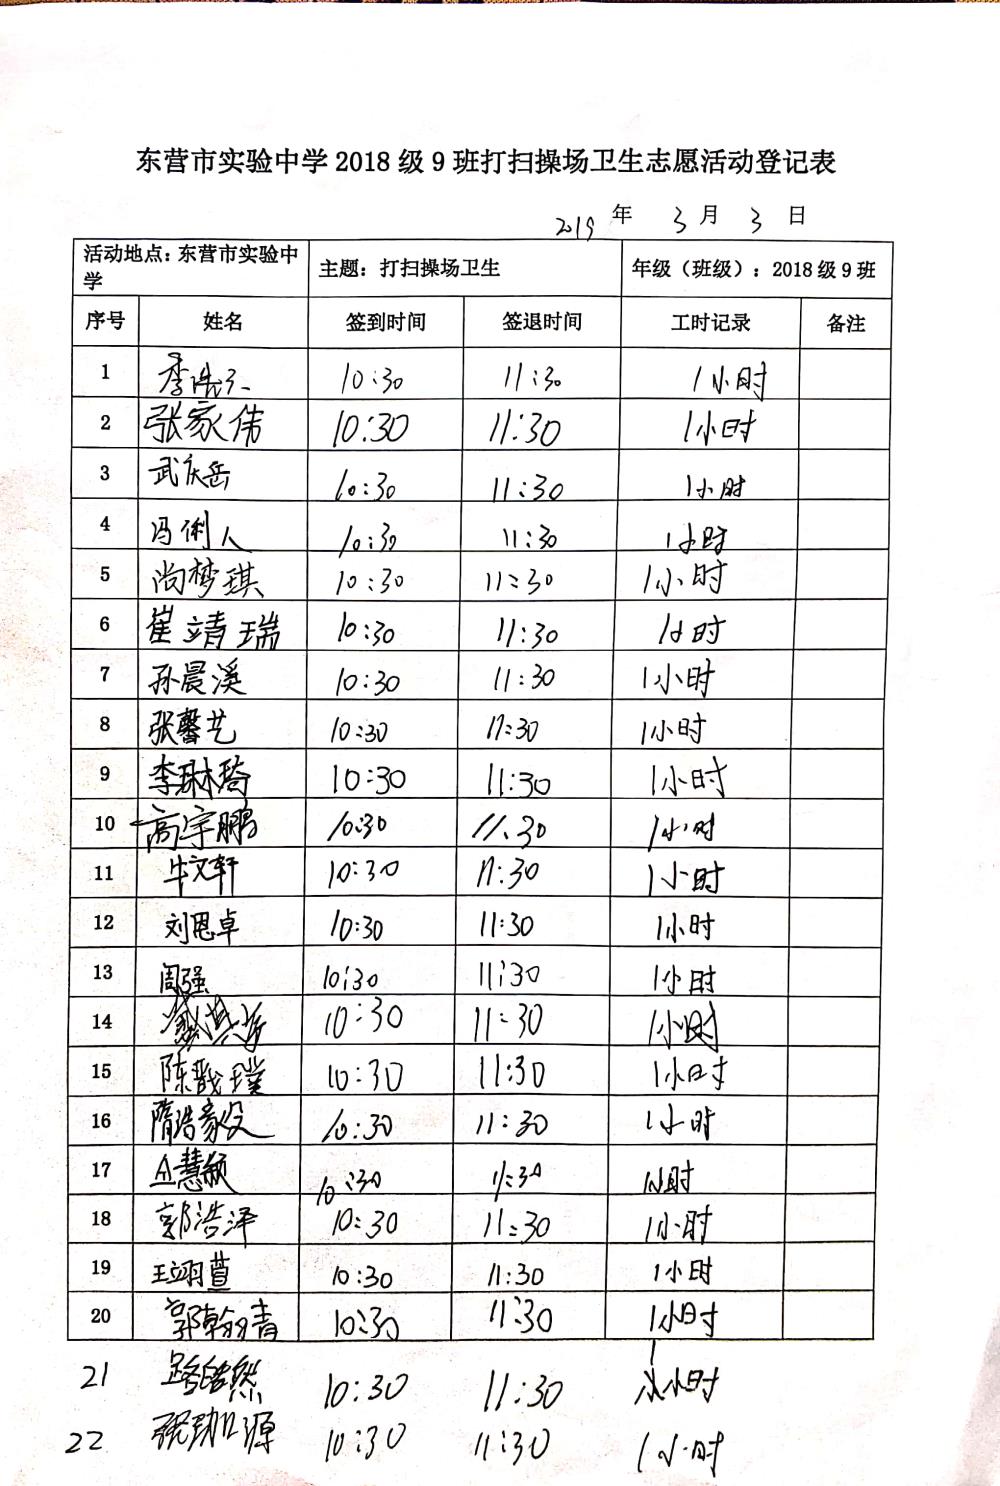 东营市实验中学2018级9班打扫操场卫生志愿活动登记表
2019年 3月 3日
活动地点：东营市实验中学 主题：打扫操场卫生 年级（班级）：2018级9班
序号 姓名 签到时间 签退时间 工时记录 备注
1 季浩 10:30 11:30 1小时
2 张家伟 10:30 11:30 1小时
3 武庆岳 10:30 11:30 1小时
4 冯俐人 10:30 11:30 1小时
5 尚梦琪 10:30 11:30 1小时
6 崔靖瑞 10:30 11:30 1小时
7 孙晨溪 10:30 11:30 1小时
8 张馨艺 10:30 11:30 1小时
9 李琳琦 10:30 11:30 1小时
10 高宇鹏 10:30 11:30 1小时
11 牛文轩 10:30 11:30 1小时
12 刘恩卓 10:30 11:30 1小时
13 周强 10:30 11:30 1小时
14 10:30 11:30 1小时
15 陈戬璞 10:30 11:30 1小时
16 隋浩 10:30 11:30 1小时
17 慧颖 10:30 11:30 1小时
18 郭浩泽 10:30 11:30 1小时
19 王翊萱 10:30 11:30 1小时
20 郭翰青 10:30 11:30 1小时
21 路皓然 10:30 11:30 1小时
22 张珈源 10:30 11:30 1小时